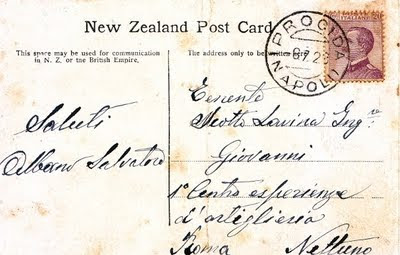 New Zealand Post Card
This space may be used for communication
in N. Z. or the British Empire.
The address only to be
PROCIDA
NAPOLI
Saluti
Albano Salvatore
Giovanni
1° Centro esperienze
d'artiglieria
Roma Nettuno